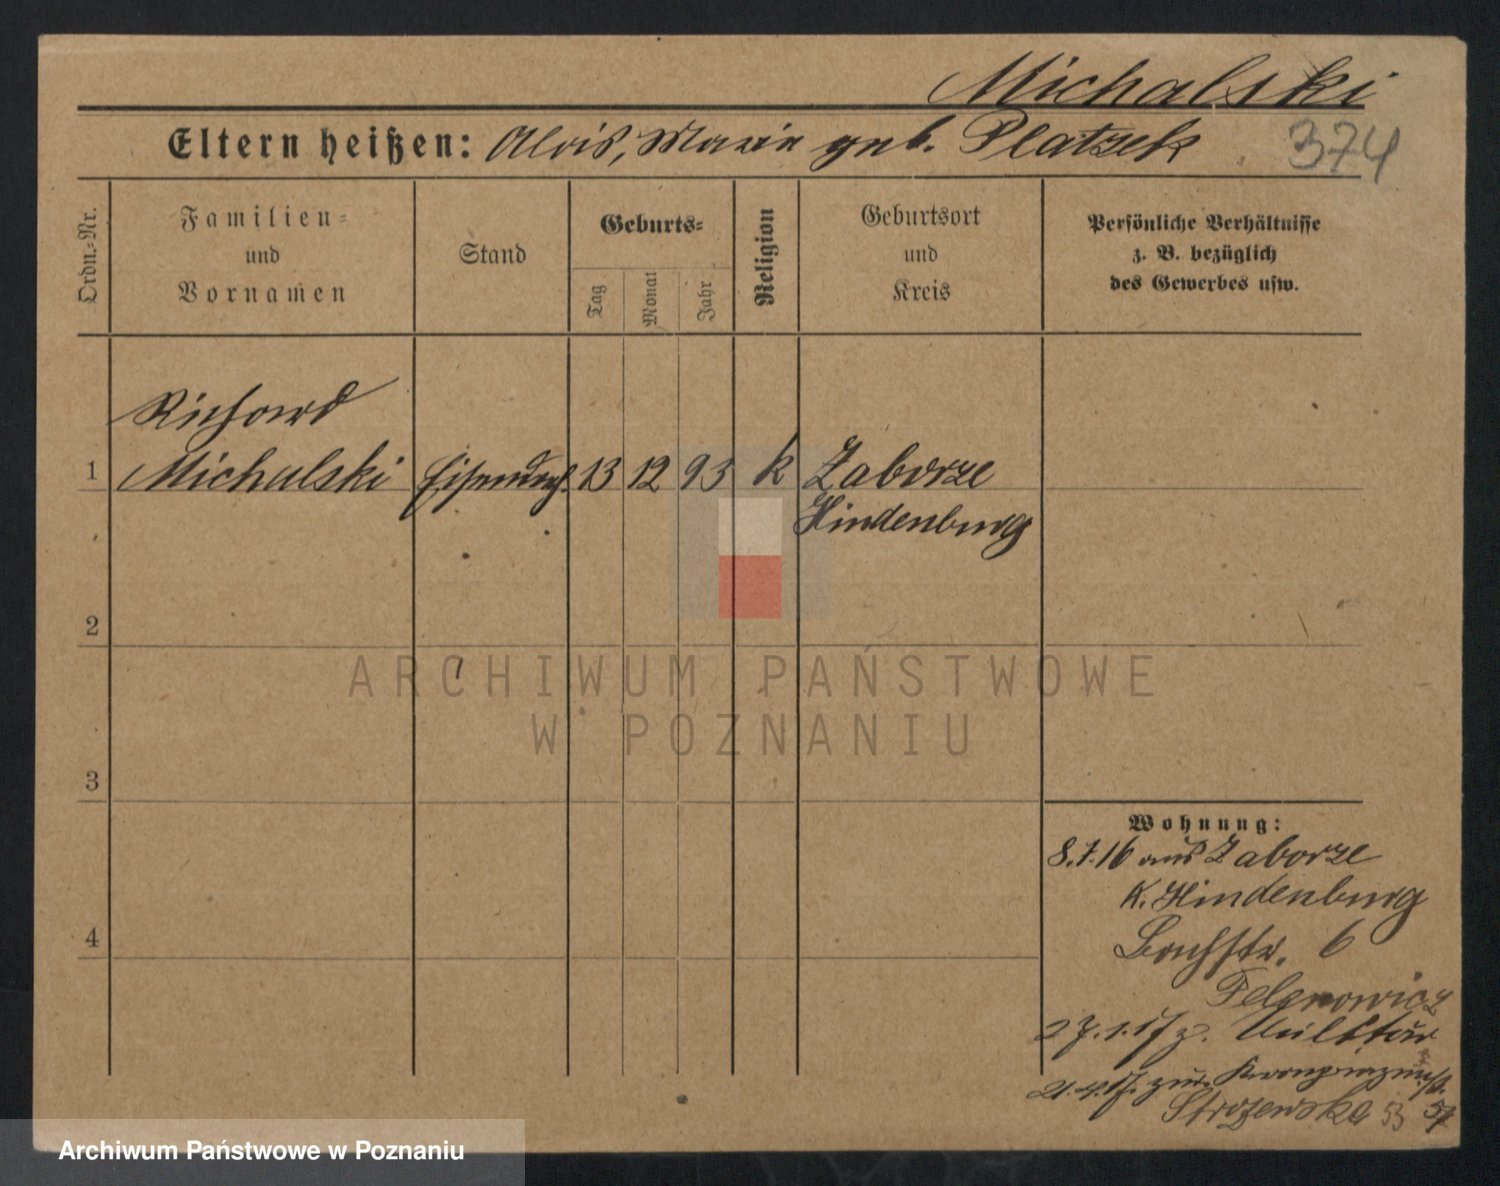 Michalski
Eltern heißen: Alois, Marie geb. Platzek 374
Ordn.=Nr.
Familien=
und
Vornamen
Stand
Geburts=
Tag
Monat
Jahr
Religion
Geburtsort
und
Kreis
Persönliche Verhältnisse
z. B. bezüglich
des Gewerbes usw.
Richard
1 Michalski Eisendreh. 13 12 93 k Zaborze
Hindenburg
2
3
4
ARCHIWUM PAŃSTWOWE
W POZNANIU
Wohnung:
8.7.16 aus Zaborze
K. Hindenburg
Bachstr. 6
27.1.17 z. Militär
21.4.17 zur. Kronprinzenstr.
53 57
Archiwum Państwowe w Poznaniu